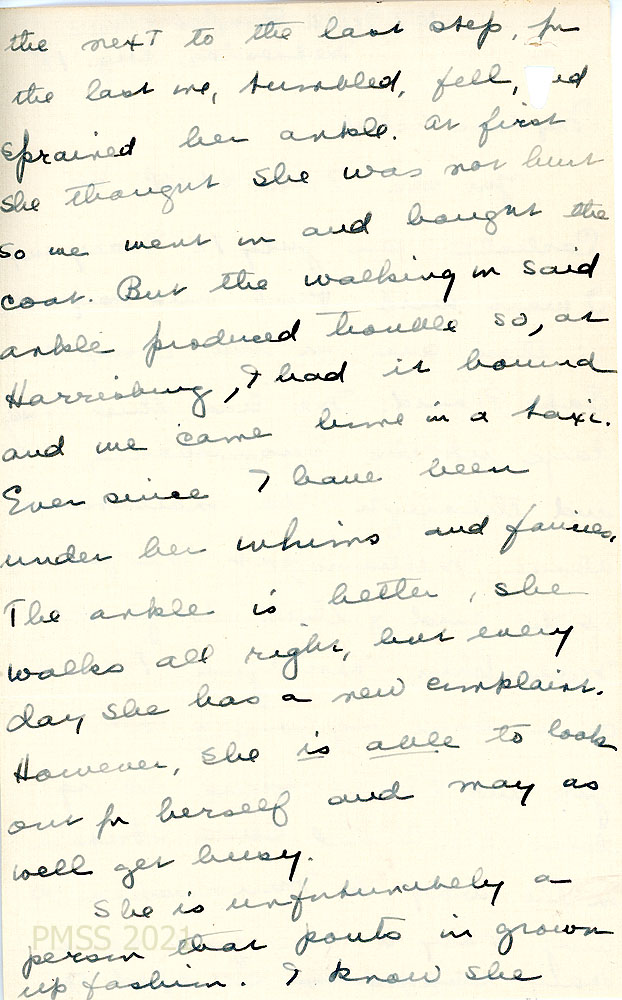 the next to the last step, for
the last one, tumbled, fell, and
sprained her ankle. At first
she thought she was not hurt
so we went in and bought the
coat. But the walking on said
ankle produced trouble so, at
Harrisburg, I had it bound
and we came home in a taxi.
Ever since I have been
under her whims and fancies.
The ankle is better, she
walks all right, but every
day she has a new complaint.
However, she is able to look
out for herself and may as
well get busy.
She is unfortunately a
person that pouts in grown
up fashion. I know she
PMSS 2021